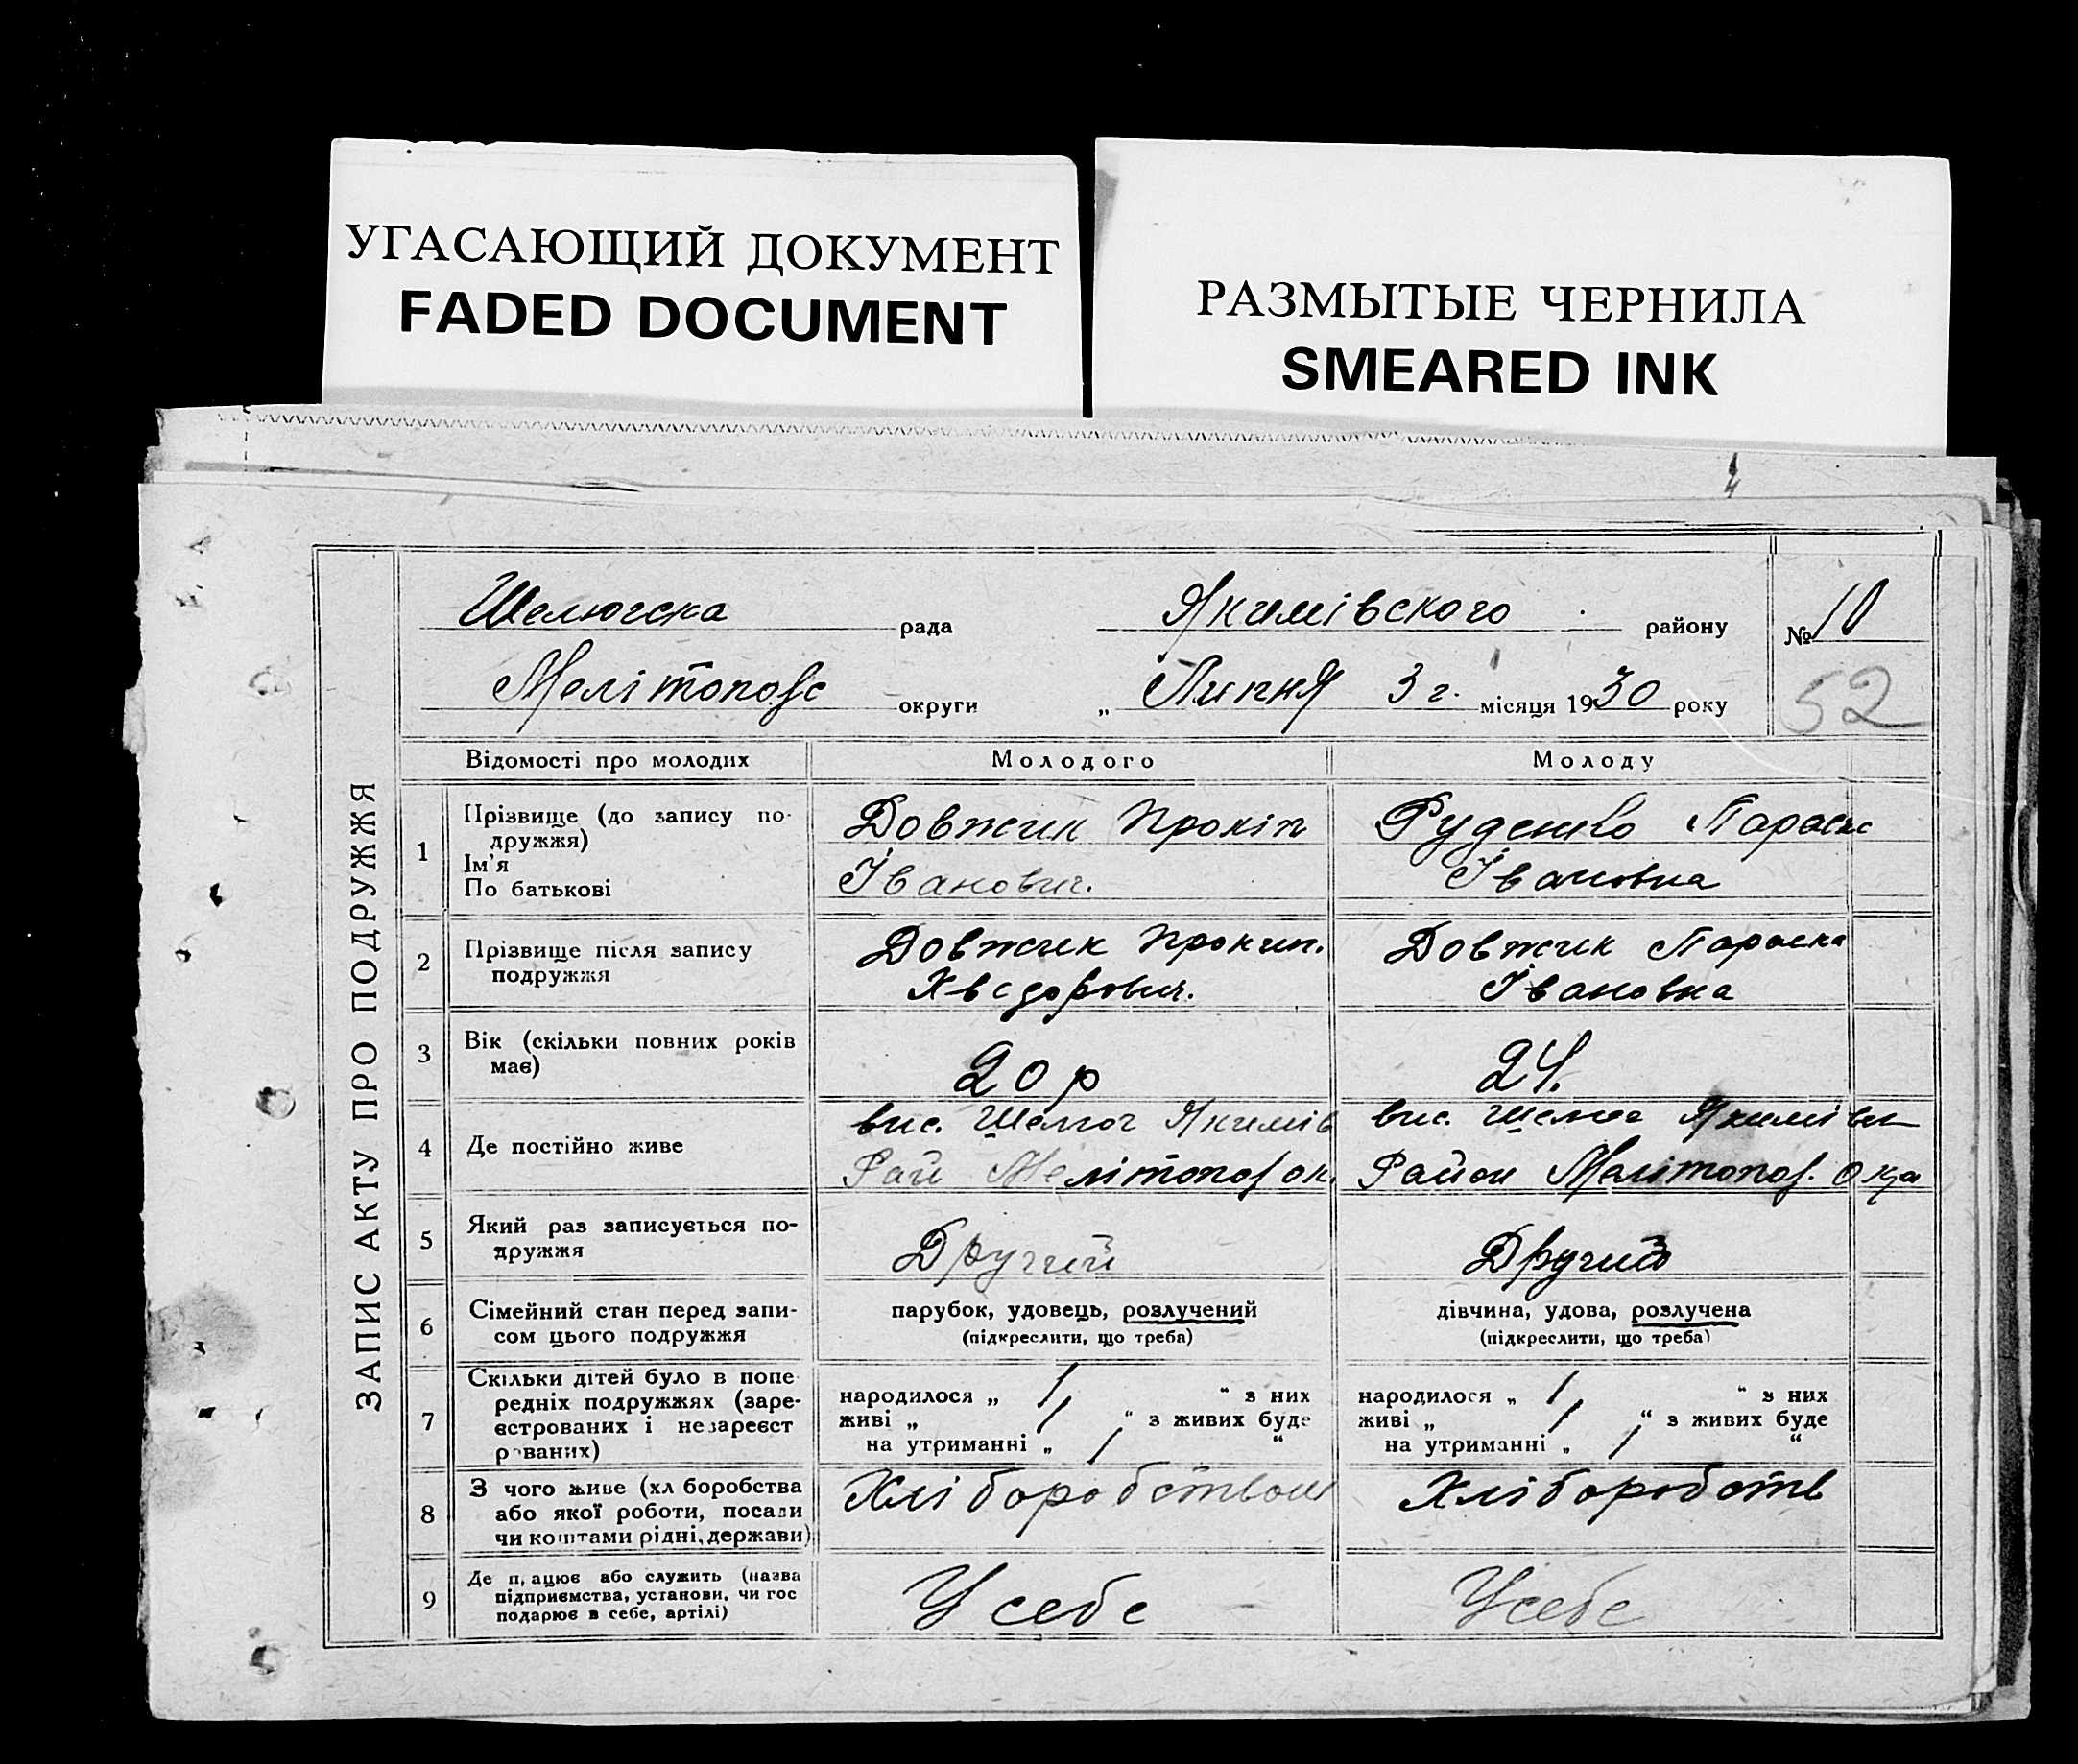 УГАСАЮЩИЙ ДОКУМЕНТ
FADED DOCUMENT
РАЗМЫТЫЕ ЧЕРНИЛА
SMEARED INK
ЗАПИС АКТУ ПРО ПОДРУЖЖЯ
Шелюгска рада Якимівского району № 10
Мелітопол округи „ Липня 3 г. місяця 1930 року 52
Відомості про молодих Молодого Молоду
1 Прізвище (до запису по-
дружжя)
Ім'я
По батькові
Довжик Прокіп
Іванович.
Руденко Параск
Івановна
2 Прізвище після запису
подружжя
Довжик Прокип.
Хведорович.
Довжик Параска
Івановна
3 Вік (скільки повних років
має)
20 р
24.
4 Де постійно живе
вис. Шелюг Якимів
Рай Мелітопол ок.
вис. Шелюг Якимівск
Район Мелітопол. окр
5 Який раз записується по-
дружжя
Другий
Другий
6 Сімейний стан перед запи-
сом цього подружжя
парубок, удовець, розлучений
(підкреслити, що треба)
дівчина, удова, розлучена
(підкреслити, що треба)
7 Скільки дітей було в попе
редніх подружжях (заре-
єстрованих і незареєст
рованих)
народилося „ / “ з них
живі „ / “ з живих буде
на утриманні „ / “
народилося „ / “ з них
живі „ / “ з живих буде
на утриманні „ / “
8 З чого живе (хл боробства
або якої роботи, посади
чи коштами рідні, держави)
Хліборобством
Хлібороботв
9 Де п, ацює або служить (назва
підприємства, установи, чи гос
подарює в себе, артілі)
У себе
У себе